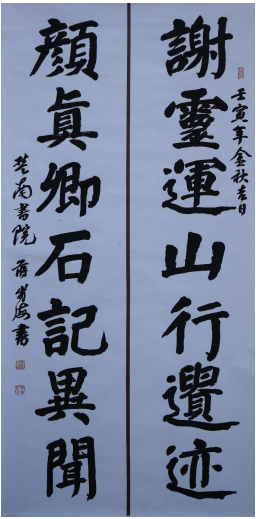 壬寅年金秋吉日
謝靈運山行遺迹
顔眞卿石記異聞
楚南書院
書